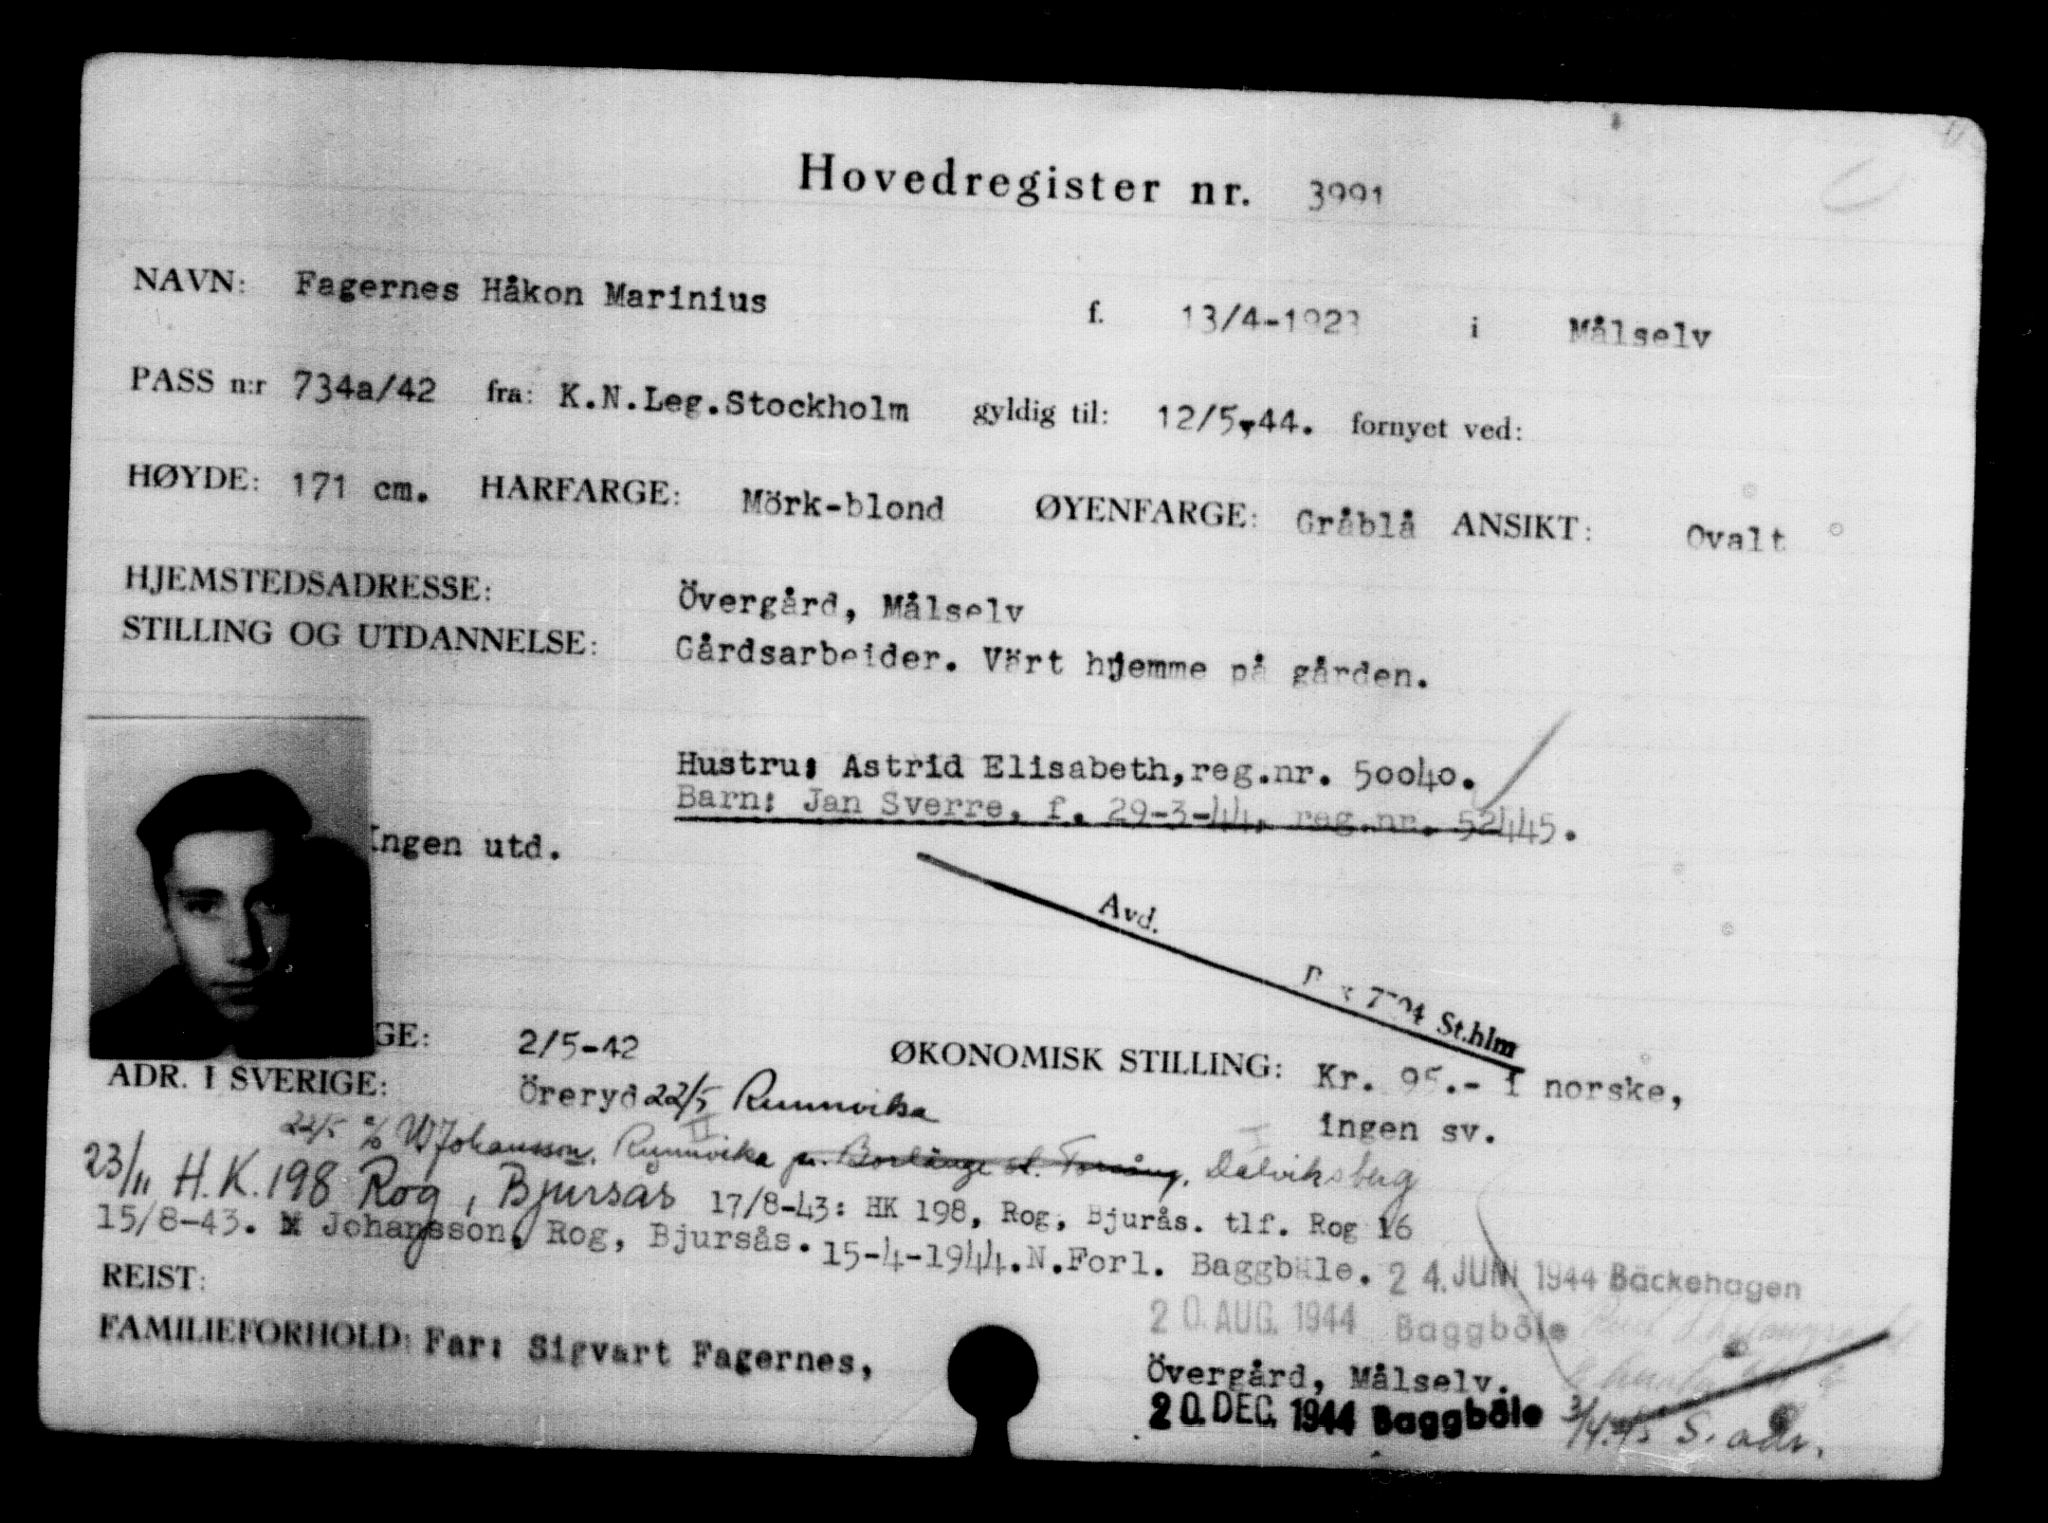 Hovedregister nr. 3991
NAVN: Fagernes Håkon Marinius f. 13/4-1923 i Målselv
PASS n:r 734a/42 fra: K.N.Leg.Stockholm gyldig til: 12/5.44. fornyet ved:
HØYDE: 171 cm. HARFARGE: Mörk-blond ØYENFARGE: Gråblå ANSIKT: Ovalt
HJEMSTEDSADRESSE: Övergård, Målselv
STILLING OG UTDANNELSE: Gårdsarbeider. Värt hjemme på gården.
Hustru: Astrid Elisabeth, reg.nr. 50040.
Barn: Jan Sverre, f. 29-3-44, reg.nr. 52445.
Ingen utd.
Avd.
St.hlm
GE: 2/5-42 ØKONOMISK STILLING: Kr. 95.- i norske,
ADR. I SVERIGE: Öreryd 22/5 Rumnvika
ingen sv.
22/5 c/o W Johansson, Rumnvika pr. Borlänge st. Torsång, Dalviksberg
23/11 H.K.198 Rog, Bjursås 17/8-43: HK 198, Rog, Bjurås. tlf. Rog 16
15/8-43. M Johansson, Rog, Bjursås. 15-4-1944. N.Forl. Baggböle. 24. JUNI 1944 Bäckehagen
REIST:
20. AUG. 1944 Baggböle
FAMILIEFORHOLD: Far: Sigvart Fagernes, Övergård, Målselv.
20. DEC. 1944 Baggböle 3/4.45 S. adr.